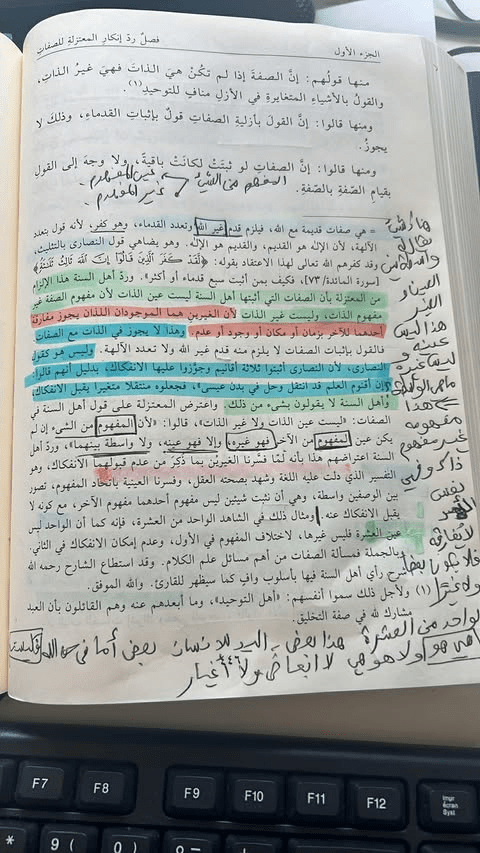 الجزء الأول
فصلٌ ردّ إنكارِ المعتزلةِ للصفاتِ
منها قولُهم: إنَّ الصفةَ إذا لم تكُنْ هيَ الذاتَ فهيَ غيرُ الذاتِ،
والقولُ بالأشياءِ المتغايرةِ في الأزلِ منافٍ للتوحيدِ(١).
ومنها قالوا: إنَّ القولَ بأزليةِ الصفاتِ قولٌ بإثباتِ القدماءِ، وذلكَ لا
يجوزُ.
ومنها قالوا: إنَّ الصفاتِ لو ثبتَتْ لكانَتْ باقيةً، ولا وجهَ إلى القولِ
بقيامِ الصّفةِ بالصّفةِ.
المفهوم من الشيء
غير المفهوم
= هي صفات قديمة مع الله، فيلزم قدم غير الله وتعدد القدماء، وهو كفر، لأنه قول بتعدد
الآلهة، لأن الإله هو القديم، والقديم هو الإله. وهو يضاهي قول النصارى بالتثليث،
وقد كفرهم الله تعالى لهذا الاعتقاد بقوله: ﴿لَقَدْ كَفَرَ الَّذِينَ قَالُوا إِنَّ اللَّهَ ثَالِثُ ثَلَاثَةٍ﴾
[سورة المائدة/ ٧٣]، فكيف بمن أثبت سبع قدماء أو أكثر». وردّ أهل السنة هذا الإلزام
من المعتزلة بأن الصفات التي أثبتها أهل السنة ليست عين الذات لأن مفهوم الصفة غير
مفهوم الذات، وليست غير الذات لأن الغيرين هما الموجودان اللذان يجوز مفارقة
أحدهما للآخر بزمان أو مكان أو وجود أو عدم. وهذا لا يجوز في الذات مع الصفات.
فالقول بإثبات الصفات لا يلزم منه قدم غير الله ولا تعدد الآلهة. وليس هو كقول
النصارى، لأن النصارى أثبتوا ثلاثة أقانيم وجوّزوا عليها الانفكاك، بدليل أنهم قالوا:
«إن أقنوم العلم قد انتقل وحل في بدن عيسى»، فجعلوه منتقلًا متغيرًا يقبل الانفكاك،
وأهل السنة لا يقولون بشيء من ذلك. واعترض المعتزلة على قول أهل السنة في
الصفات: «ليست عين الذات ولا غير الذات، فقالوا: «لأن المفهوم من الشيء إن لم
يكن عين المفهوم من الآخر فهو غيره وإلا فهو عينه، ولا واسطة بينهما»، وردّ أهل
السنة اعتراضهم هذا بأنه لمّا فسّرنا الغيريْن بما ذُكِرَ من عدم قبولهما الانفكاك، وهو
التفسير الذي دلت عليه اللغة وشهد بصحته العقل، وفسرنا العينية باتحاد المفهوم، تصور
بين الوصفين واسطة، وهي أن نثبت شيئين ليس مفهوم أحدهما مفهوم الآخر، مع كونه لا
يقبل الانفكاك عنه. ومثال ذلك في الشاهد الواحد من العشرة، فإنه كما أن الواحد ليس
عين العشرة فليس غيرها، لاختلاف المفهوم في الأول، وعدم إمكان الانفكاك في الثاني.
وبالجملة فمسألة الصفات من أهم مسائل علم الكلام. وقد استطاع الشارح رحمه الله
شرح رأي أهل السنة فيها بأسلوب وافٍ كما سيظهر للقارئ. والله الموفق.
(١) ولأجل ذلك سموا أنفسهم: «أهل التوحيد»، وما أبعدهم عنه وهم القائلون بأن العبد
مشارك لله في صفة التخليق.
هذا ليس
عينه و
ليس غيره
هذا
مفهومه
غير مفهوم
ذاك وفي
نفس
لا يفارقه
فلا يكون بعضا
ولا غيرا
لواحد من العشرة هذا بعض - اليد للإنسان بعض أما في
ولا هو هي لا أبعاض ولا أغيار
٤٤٦
F7
F8
F9
F10
F11
F12
Impr
écran
Syst
*
9
(
0
)